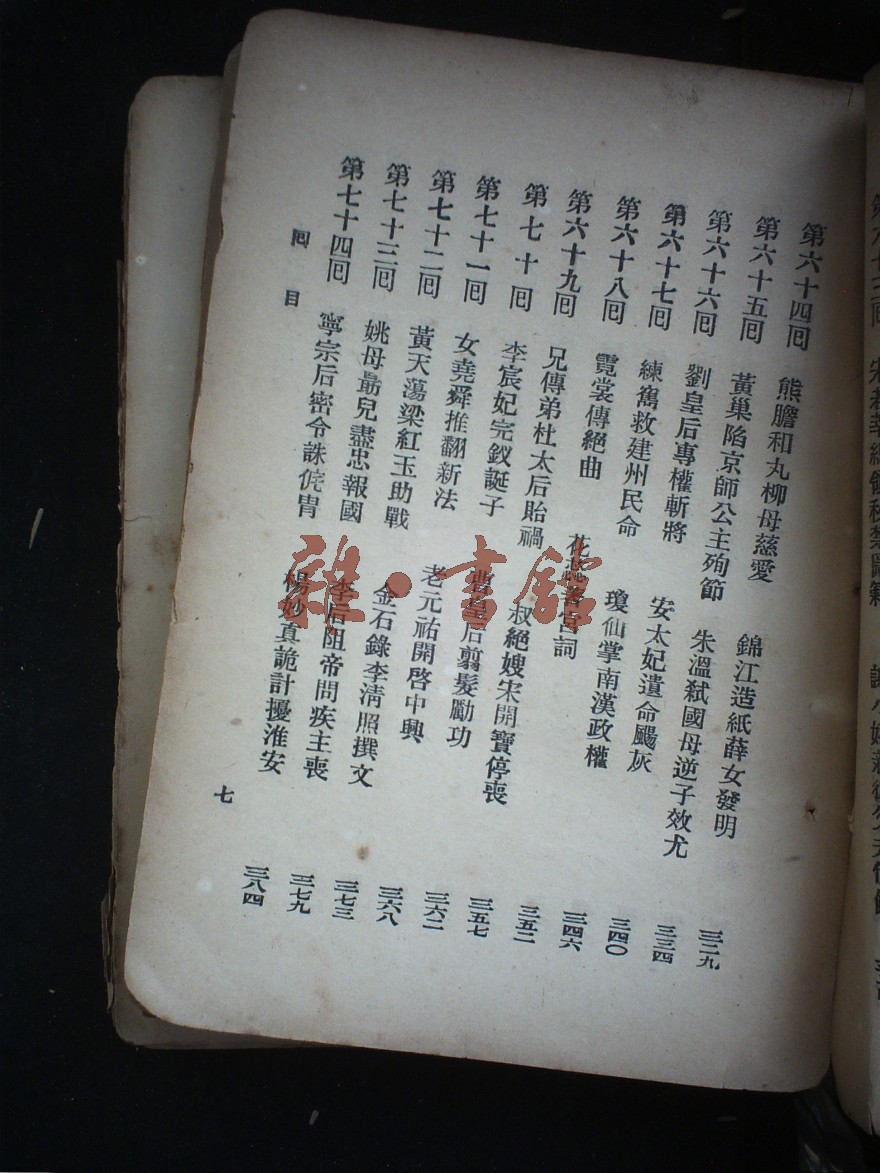 第六十四回 熊膽和丸柳母慈愛 錦江造紙薛女發明 三二九
第六十五回 黃巢陷京師公主殉節 朱溫弒國母逆子效尤 三三四
第六十六回 劉皇后專權斬將 安太妃遺命颺灰 三四〇
第六十七回 練寯救建州民命 瓊仙掌南漢政權 三四六
第六十八回 霓裳傳絕曲 花蕊著宮詞 三五二
第六十九回 兄傳弟杜太后貽禍 叔絕嫂宋開寶停喪 三五七
第七十回 李宸妃完釵誕子 曹皇后翦髮勵功 三六二
第七十一回 女堯舜推翻新法 老元祐開啓中興 三六八
第七十二回 黃天蕩梁紅玉助戰 金石錄李清照撰文 三七三
第七十三回 姚母勗兒盡忠報國 李后阻帝問疾主喪 三七九
第七十四回 寧宗后密令誅侂冑 楊妙真詭計擾淮安 三八四
回目 七
雜·書館